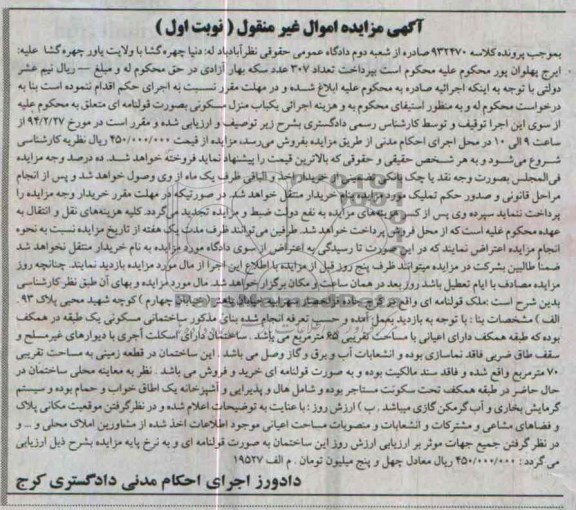 آگهی مزایده اموال غیر منقول ( نوبت اول )
بموجب پرونده کلاسه ۹۳۲۴۷۰ صادره از شعبه دوم دادگاه عمومی حقوقی نظرآباد له: دنیا چهره گشا با ولایت یاور چهره گشا علیه:
ایرج پهلوان پور محکوم علیه محکوم است بپرداخت تعداد ۳۰۷ عدد سکه بهار آزادی در حق محکوم له و مبلغ --- ریال نیم عشر
دولتی با توجه به اینکه اجرائیه صادره به محکوم علیه ابلاغ شده و در مهلت مقرر نسبت به اجرای حکم اقدام ننموده است بنا به
درخواست محکوم له و به منظور استیفای محکوم به و هزینه اجرائی یکباب منزل مسکونی بصورت قولنامه ای متعلق به محکوم علیه
از سوی این اجرا توقیف و توسط کارشناس رسمی دادگستری بشرح زیر توصیف و ارزیابی شده و مقرر است در مورخ ۹۴/۲/۲۷ از
ساعت ۹ الی ۱۰ در محل اجرای احکام مدنی از طریق مزایده بفروش می‌رسد، مزایده از قیمت ۴۵۰/۰۰۰/۰۰۰ ریال نظریه کارشناسی
شروع می‌شود و به هر شخص حقیقی و حقوقی که بالاترین قیمت را پیشنهاد نماید فروخته خواهد شد. ده درصد وجه مزایده
فی‌المجلس بصورت وجه نقد یا چک بانکی تضمینی از خریدار اخذ و الباقی ظرف یک ماه از وی وصول خواهد شد و پس از انجام
مراحل قانونی و صدور حکم تملیک مورد مزایده بنام خریدار منتقل خواهد شد. در صورتیکه در مهلت مقرر خریدار وجه مزایده را
پرداخت ننماید سپرده وی پس از کسر هزینه‌های مزایده به نفع دولت ضبط و مزایده تجدید می‌گردد. کلیه هزینه‌های نقل و انتقال به
عهده محکوم علیه است که از محل فروش پرداخت خواهد شد. طرفین می‌توانند ظرف مدت یک هفته از تاریخ مزایده نسبت به نحوه
انجام مزایده اعتراض نمایند که در این صورت تا رسیدگی به اعتراض از سوی دادگاه مورد مزایده به نام خریدار منتقل نخواهد شد
ضمناً طالبین بشرکت در مزایده میتوانند ظرف پنج روز قبل از مزایده با اطلاع این اجرا از مال مورد مزایده بازدید نمایند. چنانچه روز
مزایده مصادف با ایام تعطیل باشد روز بعد در همان ساعت و مکان برگزار خواهد شد. مال مورد مزایده و بهای آن طبق نظر کارشناسی
بدین شرح است :ملک قولنامه ای واقع در کرج جاده قزلحصار خیابان ناهید ( خیابان چهارم ) کوچه شهید محبی پلاک ۹۳ .
الف ) مشخصات بنا : با توجه به بازدید بعمل آمده و حسب تعرفه انجام شده بنای مذکور ساختمانی مسکونی یک طبقه در همکف
بوده که طبقه همکف دارای اعیانی با مساحت تقریبی ۶۵ مترمربع می باشد . ساختمان دارای اسکلت آجری با دیوارهای غیرمسلح و
سقف طاق ضربی فاقد نماسازی بوده و انشعابات آب و برق و گاز وصل می باشد . این ساختمان در قطعه زمینی به مساحت تقریبی
۷۰ مترمربع واقع شده و فاقد سند مالکیت بوده و به صورت قولنامه ای خرید و فروش می باشد . نظر به معاینه محلی ساختمان در
حال حاضر در طبقه همکف تحت سکونت مستاجر بوده و شامل هال و پذیرایی و آشپزخانه یک اطاق خواب و حمام بوده و سیستم
گرمایش بخاری و آب گرمکن گازی میباشد . ب ) ارزش روز : با عنایت به توضیحات اعلام شده و در نظر گرفتن موقعیت مکانی پلاک
و فضاهای مشاعی و مشترکات و انشعابات و منصوبات مساحت اعیانی موجود اطلاعات اخذ شده از مشاورین املاک محلی و ... و
در نظر گرفتن جمیع جهات موثر بر ارزیابی ارزش روز این ساختمان به صورت قولنامه ای و به نرخ پایه مزایده بشرح ذیل ارزیابی
می گردد : ۴۵۰/۰۰۰/۰۰۰ ریال معادل چهل و پنج میلیون تومان . م الف ۱۹۵۲۷
دادورز اجرای احکام مدنی دادگستری کرج